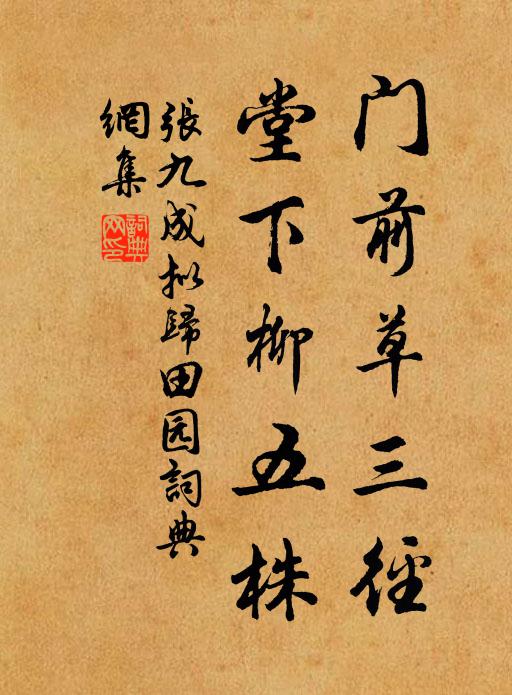 门前草三径
堂下柳五株
張九成拟歸田园詞典
網集
詞典
网印